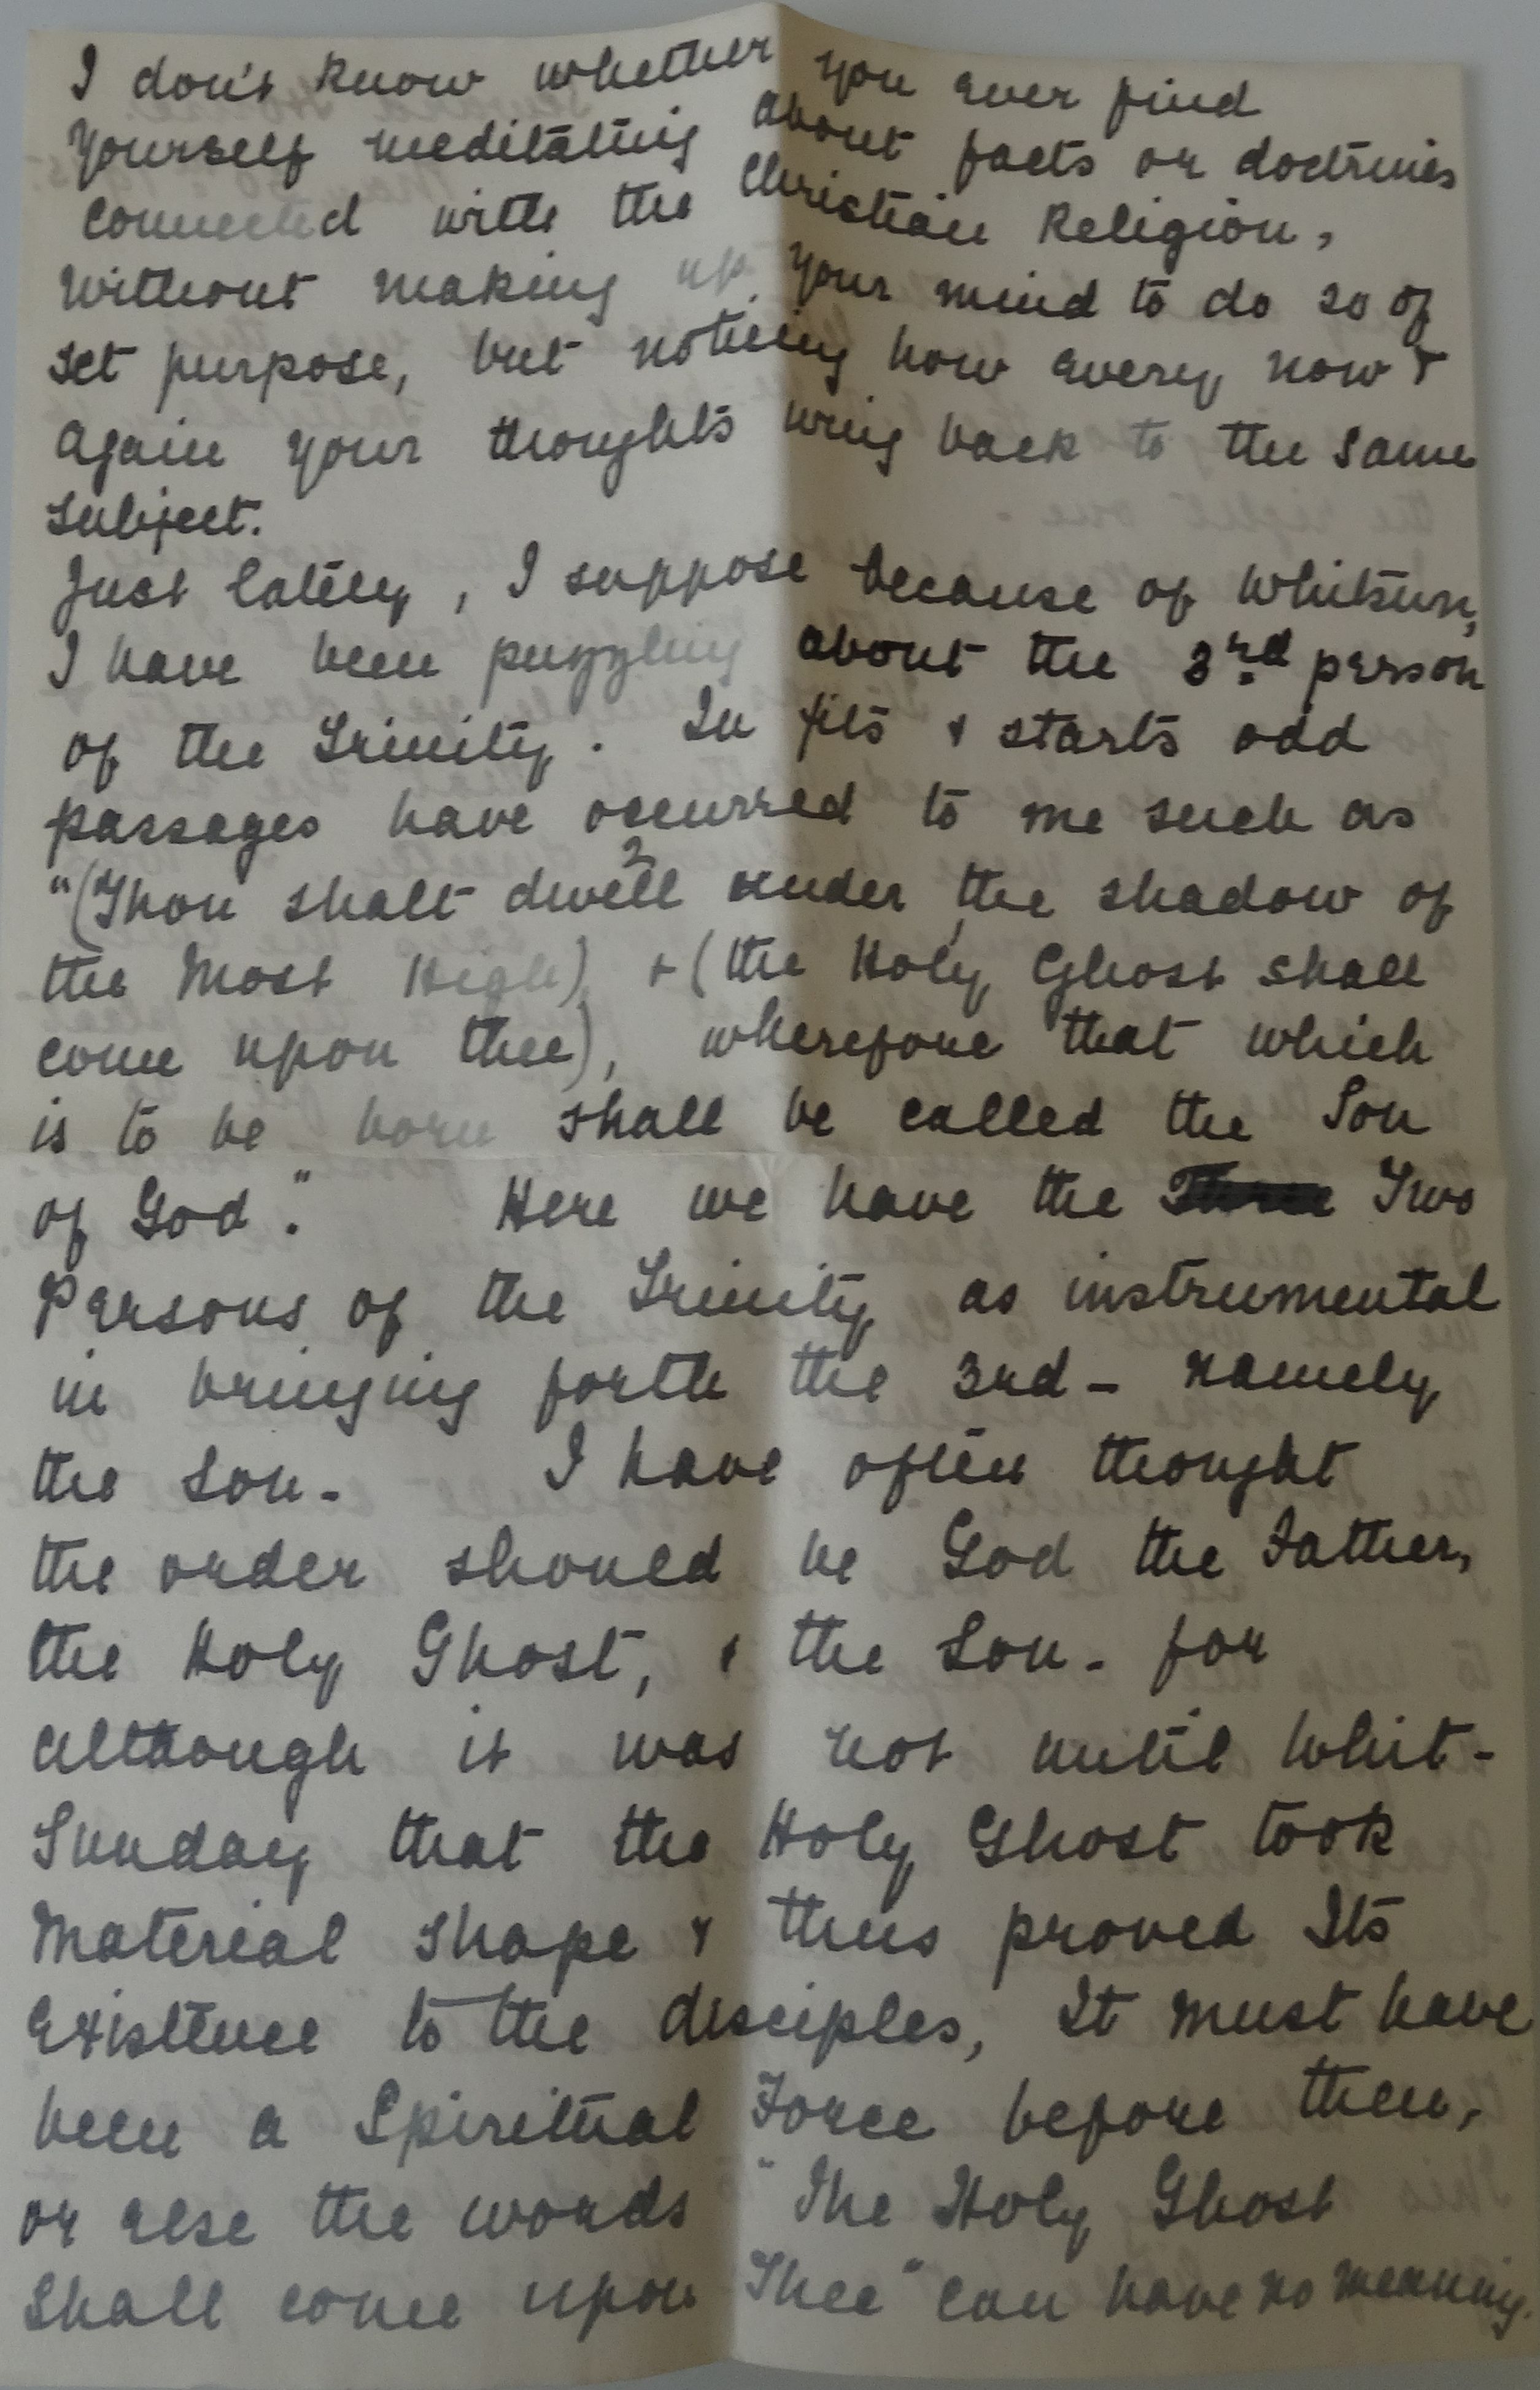 I don't know whether you ever find
yourself meditating about facts or doctrines
connected with the Christian Religion,
without making up your mind to do so of
set purpose, but noticing how every now &
again your thoughts wing back to the same
subject.
Just lately, I suppose because of Whitsun,
I have been puzzling about the 3rd person
of the Trinity. In fits & starts odd
passages have occurred to me such as
"(Thou shalt dwell ? under the shadow of
the Most High) & (the Holy Ghost shall
come upon thee), wherefore that which
is to be born shall be called the Son
of God." Here we have the Three Two
Persons of the Trinity as instrumental
in bringing forth the 3rd - namely
the Son. I have often thought
the order should be God the Father,
the Holy Ghost, & the Son - for
although it was not until Whit-
Sunday that the Holy Ghost took
Material shape & thus proved Its
existence to the disciples, It must have
been a Spiritual Force before then,
or else the words "The Holy Ghost
shall come upon Thee" can have no meaning.